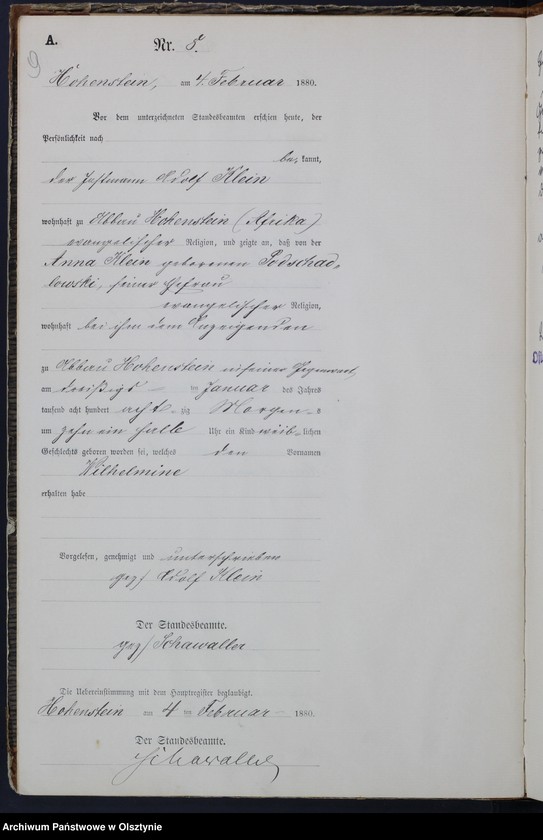 A.
9
Nr. 8.
Hohenstein, am 4. Februar 1880.
Vor dem unterzeichneten Standesbeamten erschien heute, der
Persönlichkeit nach
be kannt,
der Instmann Adolf Klein
wohnhaft zu Abbau Hohenstein (Afrika)
evangelischer Religion, und zeigte an, daß von der
Anna Klein geborenen Podschad-
lowski, seiner Ehefrau
evangelischer Religion,
wohnhaft bei ihm dem Anzeigenden
zu Abbau Hohenstein in seiner Gegenwart,
am dreißigs- ten Januar des Jahres
tausend acht hundert acht-zig Morgens
um zehn ein halb Uhr ein Kind weib-lichen
Geschlechts geboren worden sei, welches den Vornamen
Wilhelmine
erhalten habe
Vorgelesen, genehmigt und unterschrieben
gez/ Adolf Klein
Der Standesbeamte.
gez/ Schawaller
Die Uebereinstimmung mit dem Hauptregister beglaubigt.
Hohenstein am 4 ten Februar 1880.
Der Standesbeamte.
Schawaller
Archiwum Państwowe w Olsztynie